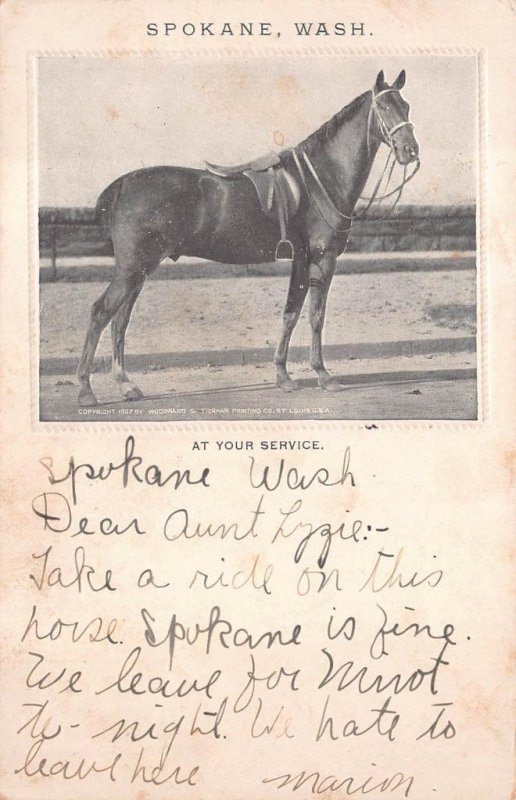 SPOKANE, WASH.
COPYRIGHT 1907 BY WOODWARD & TIERNAN PRINTING CO. ST LOUIS U.S.A.
AT YOUR SERVICE.
Spokane Wash.
Dear Aunt Lyzie:-
Take a ride on this
horse. Spokane is fine.
We leave for Minot
to-night. We hate to
leave here Marion.